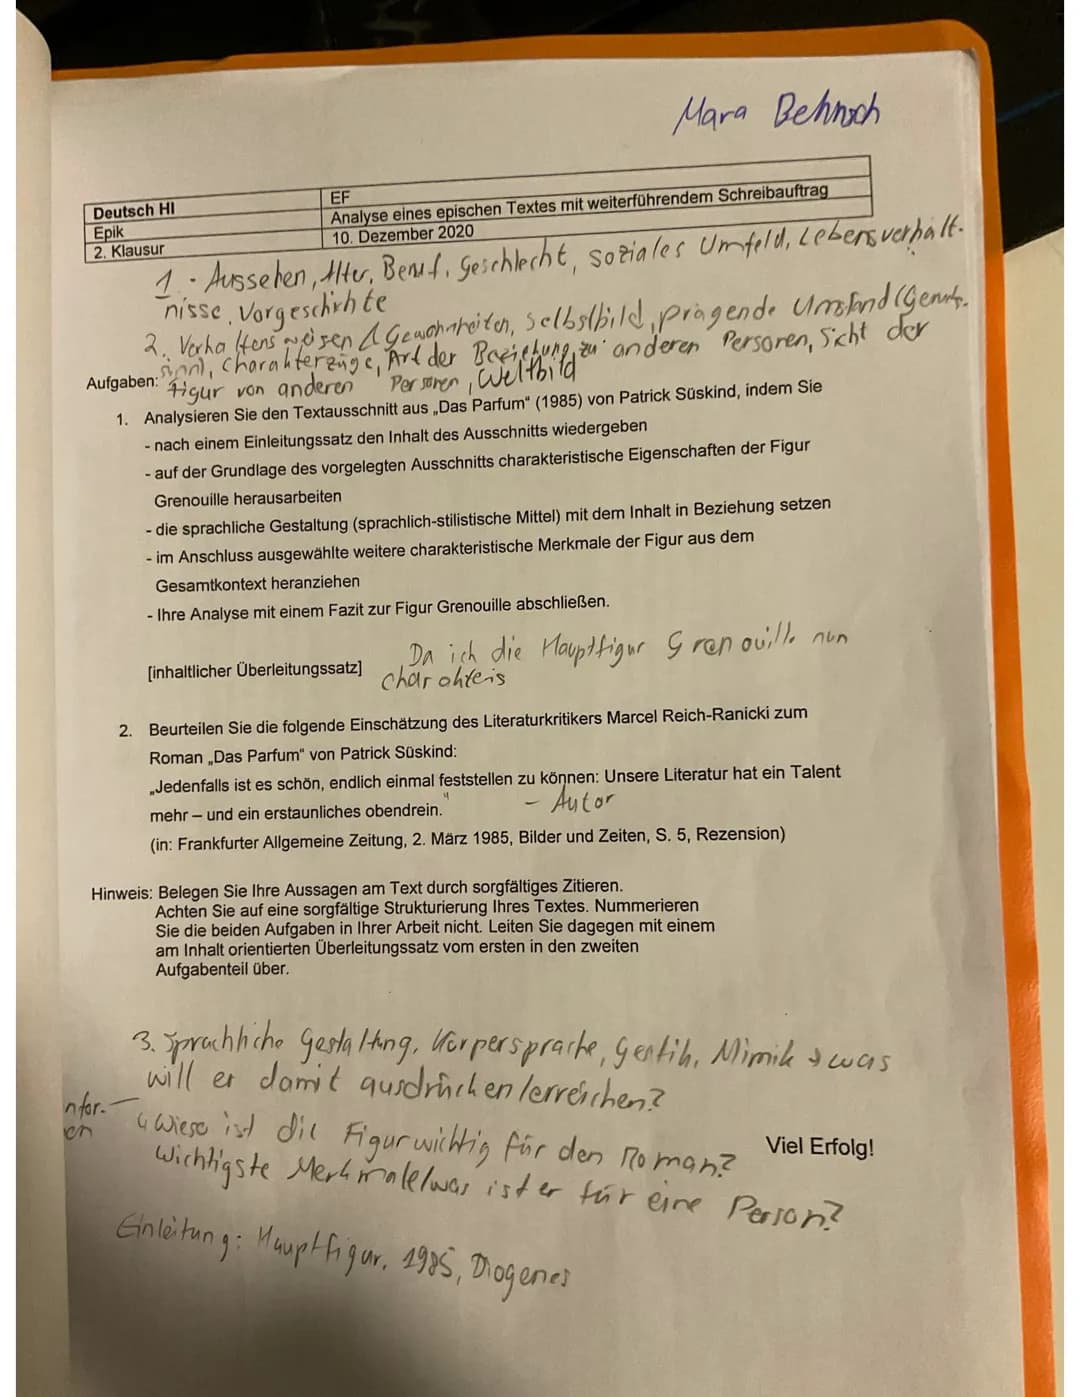 Mara Behnsch
Deutsch HI
EF
Epik
Analyse eines epischen Textes mit weiterführendem Schreibauftrag
2. Klausur
10. Dezember 2020
1. - Aussehen, Alter, Beruf, Geschlecht, soziales Umfeld, Lebensverhält-
nisse, Vorgeschichte
2. Verhaltensweisen & Gewohnheiten, Selbstbild, prägende Umstand (Geruchs-
sinn), Charakterzüge, Art der Beziehung zu anderen Personen, Sicht der
Figur von anderen Personen, Weltbild
Aufgaben:
1. Analysieren Sie den Textausschnitt aus „Das Parfum“ (1985) von Patrick Süskind, indem Sie
- nach einem Einleitungssatz den Inhalt des Ausschnitts wiedergeben
- auf der Grundlage des vorgelegten Ausschnitts charakteristische Eigenschaften der Figur
Grenouille herausarbeiten
- die sprachliche Gestaltung (sprachlich-stilistische Mittel) mit dem Inhalt in Beziehung setzen
- im Anschluss ausgewählte weitere charakteristische Merkmale der Figur aus dem
Gesamtkontext heranziehen
- Ihre Analyse mit einem Fazit zur Figur Grenouille abschließen.
[inhaltlicher Überleitungssatz]
Da ich die Hauptfigur Grenouille nun
charakteris
2. Beurteilen Sie die folgende Einschätzung des Literaturkritikers Marcel Reich-Ranicki zum
Roman „Das Parfum“ von Patrick Süskind:
„Jedenfalls ist es schön, endlich einmal feststellen zu können: Unsere Literatur hat ein Talent
mehr – und ein erstaunliches obendrein.“ - Autor
(in: Frankfurter Allgemeine Zeitung, 2. März 1985, Bilder und Zeiten, S. 5, Rezension)
Hinweis: Belegen Sie Ihre Aussagen am Text durch sorgfältiges Zitieren.
Achten Sie auf eine sorgfältige Strukturierung Ihres Textes. Nummerieren
Sie die beiden Aufgaben in Ihrer Arbeit nicht. Leiten Sie dagegen mit einem
am Inhalt orientierten Überleitungssatz vom ersten in den zweiten
Aufgabenteil über.
3. Sprachliche Gestaltung, Körpersprache, Gestik, Mimik → was
will er damit ausdrücken/erreichen?
4 Wieso ist die Figur wichtig für den Roman?
Wichtigste Merkmale/was ist er für eine Person?
Viel Erfolg!
Einleitung: Hauptfigur, 1985, Diogenes